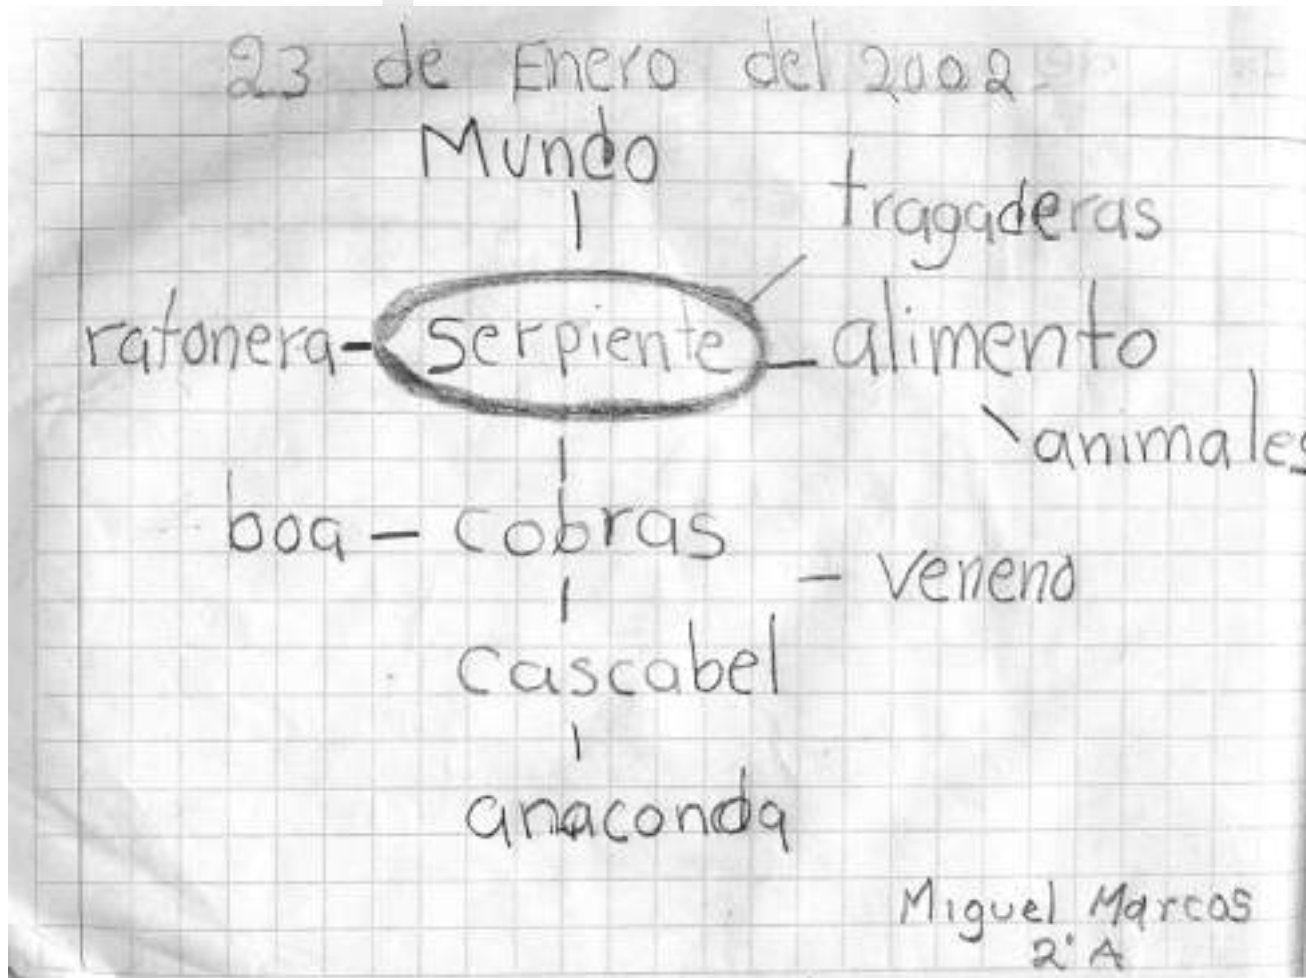 23 de Enero del 2002
Mundo
tragaderas
ratonera - serpiente - alimento
animales
boa - cobras
- veneno
cascabel
anaconda
Miguel Marcos
2° A